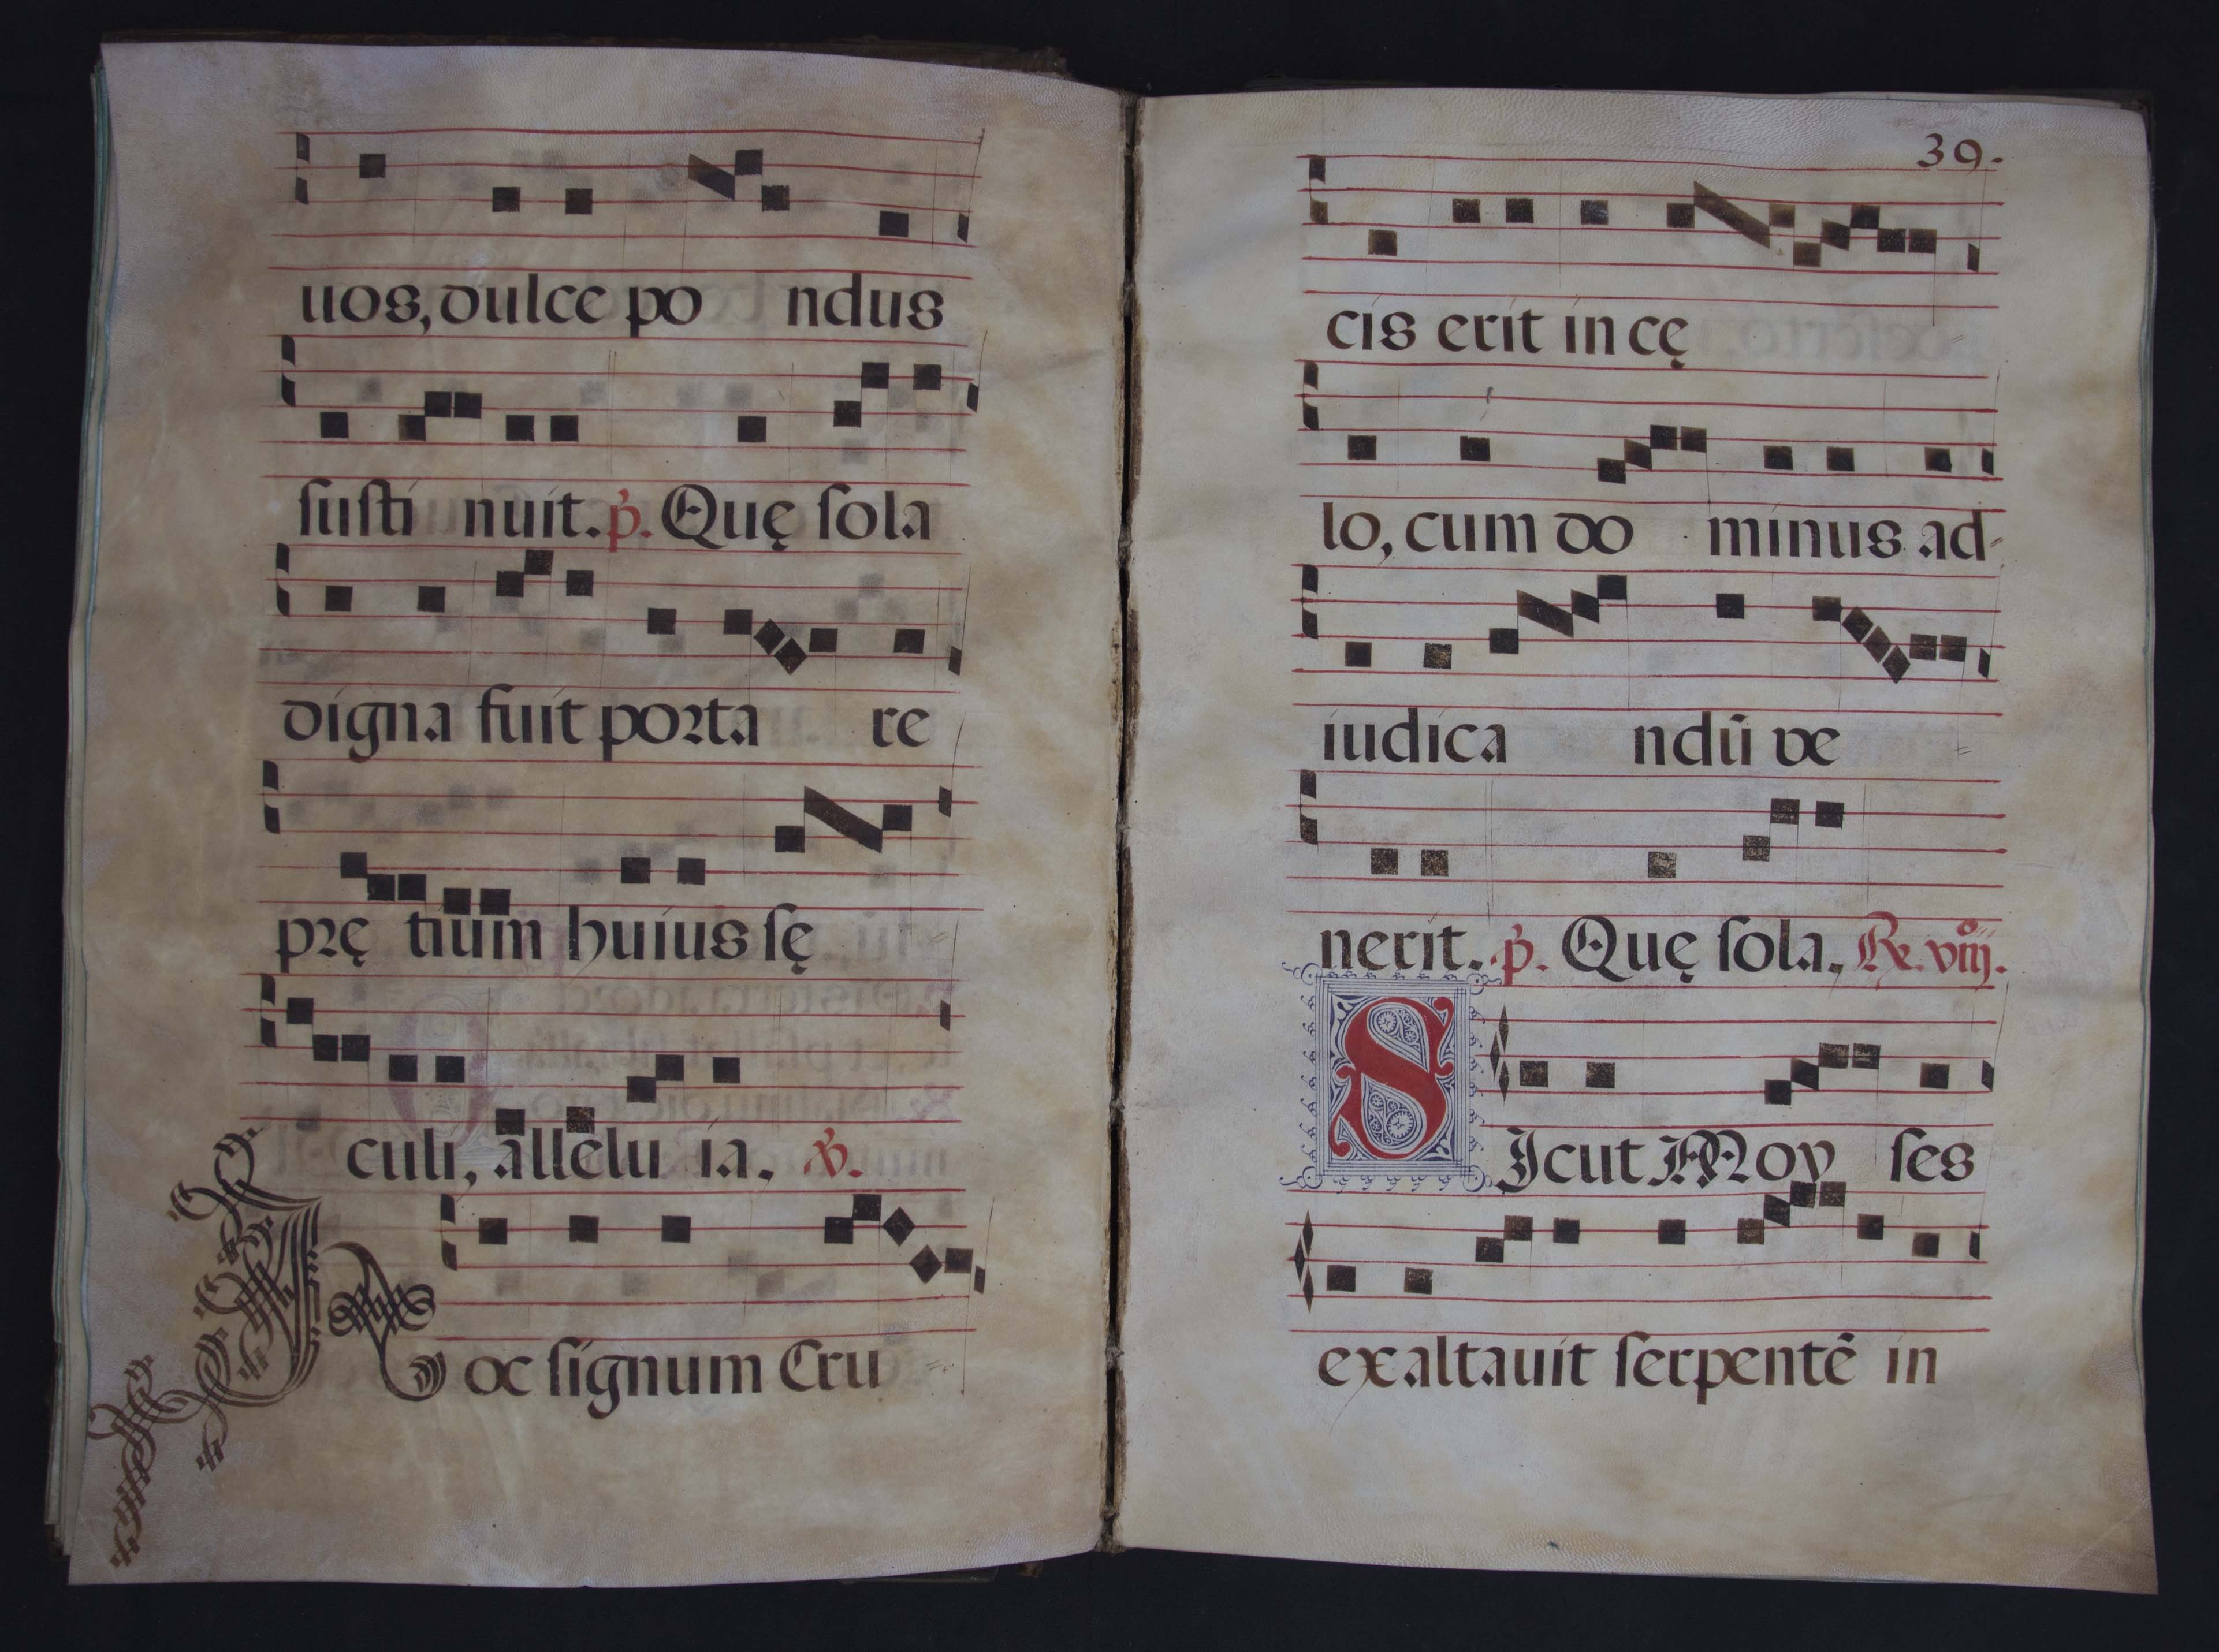 uos, dulce po ndus
susti nuit. p̃. Quę sola
digna fuit porta re
prę tium huius sę
culi, allelu ia. ℣.
Hoc signum Cru
39.
cis erit in cę
lo, cum do minus ad
iudica ndū ve
nerit. p̃. Quę sola. ℞. viijº.
SIcut Moy ses
exaltauit serpentē in